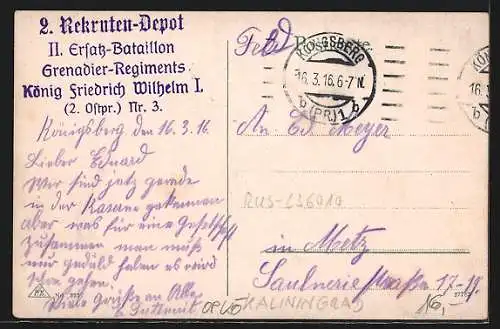 2. Rekruten-Depot
II. Ersatz-Bataillon
Grenadier-Regiments
König Friedrich Wilhelm I.
(2. Ostpr.) Nr. 3.
Königsberg den 16.3.16.
Lieber Eduard
Wir sind jetz gerade
in der Kaserne gekommen
aber was für eine Gesellschaft
zusammen man muß
nur geduld haben es wird
schon gehen.
Viele Grüße an Alle
Feld
KÖNIGSBERG
16.3.16.6-7N.
b (PR.) 1 b
16.
b
An Ed Meyer
RUS-L36010
in Metz
Saulneriestraße 17-19
KALININGRAD